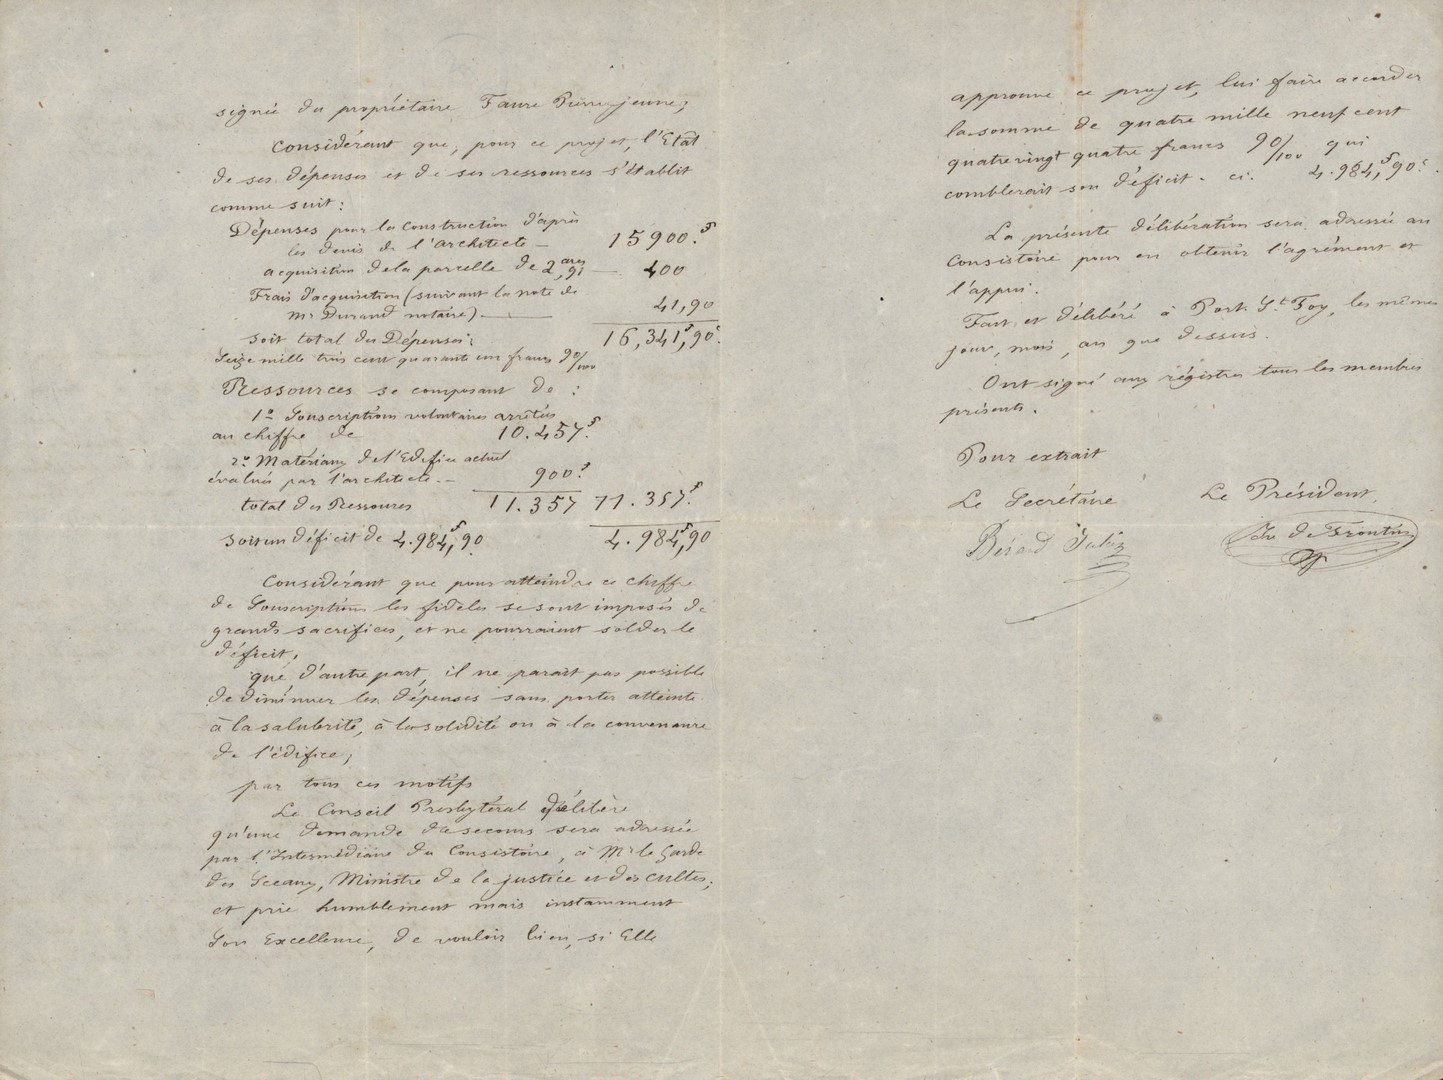 signée du propriétaire Faure Pierre jeune;
Considérant que, pour ce projet, l'Etat
de ses dépenses et de ses ressources s'établit
comme suit:
Dépenses pour la construction d'après
les devis de l'architecte — 15900.f
acquisition de la parcelle de 2 ares,91 — 400
Frais d'acquisition (suivant la note de
Mr Durand notaire) — 41,90
soit total des Dépenses: 16,341f,90c.
Seize mille trois cent quarante un francs 90/100
Ressources se composant de :
1o Souscriptions volontaires arrêtées
au chiffre de 10.457f.
2o Matériaux de l'Edifice actuel
évalués par l'architecte. — 900.f
total des Ressources 11.357 11.357f.
soit un déficit de 4.984f,90 4.984f,90
Considérant que pour atteindre ce chiffre
de Souscriptions les fidèles se sont imposés de
grands sacrifices, et ne pourraient solder le
déficit,
que d'autre part, il ne parait pas possible
de diminuer les dépenses sans porter atteinte
à la salubrité, à la solidité ou à la convenance
de l'édifice;
par tous ces motifs
Le Conseil Presbytéral délibère
qu'une demande de secours sera adressée
par l'Intermédiaire du Consistoire, à Mr le Garde
des Sceaux, Ministre de la justice et des cultes;
et prie humblement mais instamment
Son Excellence, de vouloir bien, si Elle
approuve ce projet, lui faire accorder
la somme de quatre mille neuf cent
quatre vingt quatre francs 90/100 qui
comblerait son déficit. ci. 4.984f,90c.
La présente délibération sera adressée au
Consistoire pour en obtenir l'agrément et
l'appui.
Fait et délibéré à Port Ste Foy, les mêmes
jour, mois, an que dessus.
Ont signé aux régistres tous les membres
présents.
Pour extrait
Le Secrétaire Le Président,
Bérard de Frontin